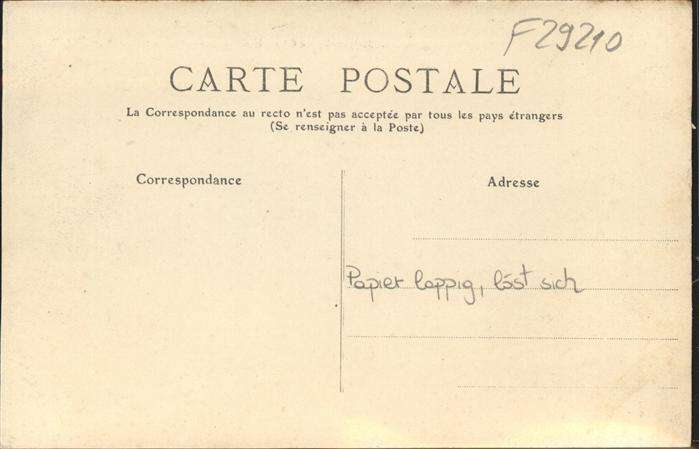 F29210
CARTE POSTALE
La Correspondance au recto n'est pas acceptée par tous les pays étrangers
(Se renseigner à la Poste)
Correspondance
Adresse
Papier lappig, löst sich